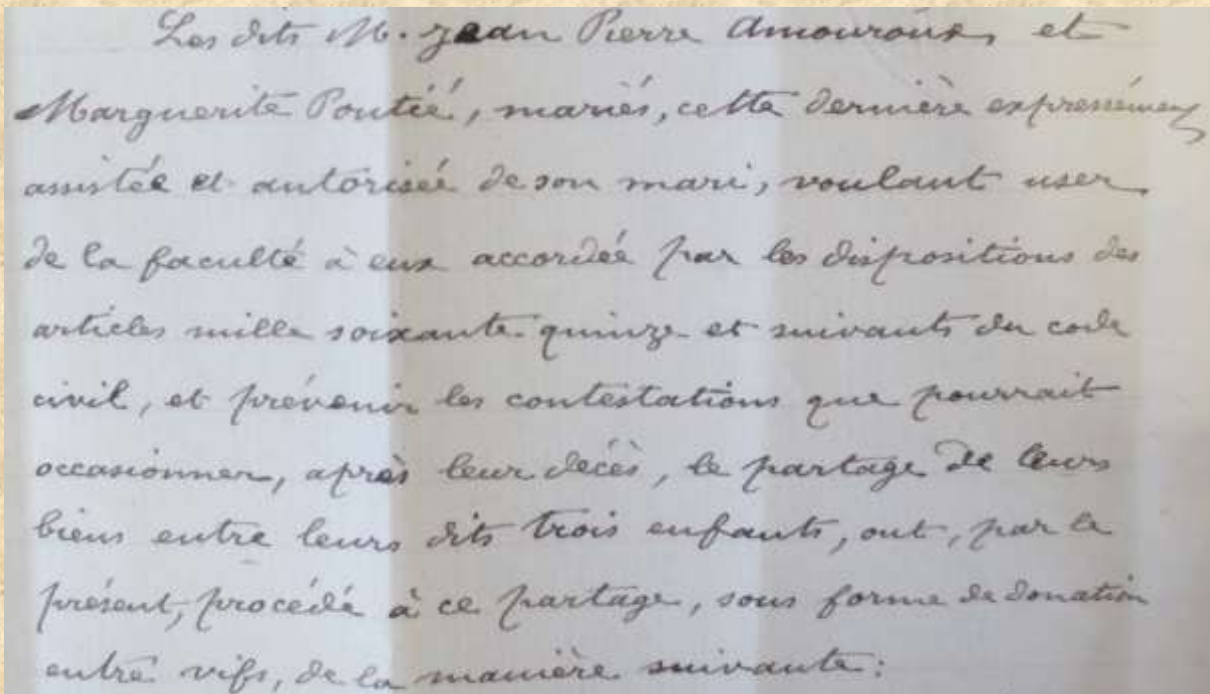 Les dits M. Jean Pierre Amouroux, et
Marguerite Poutié, mariés, cette dernière expressément
assistée et autorisée de son mari, voulant user
de la faculté à eux accordée par les dispositions des
articles mille soixante quinze et suivants du code
civil, et prévenir les contestations que pourrait
occasionner, après leur décès, le partage de leurs
biens entre leurs dits trois enfants, ont, par le
présent, procédé à ce partage, sous forme de donation
entre vifs, de la manière suivante: